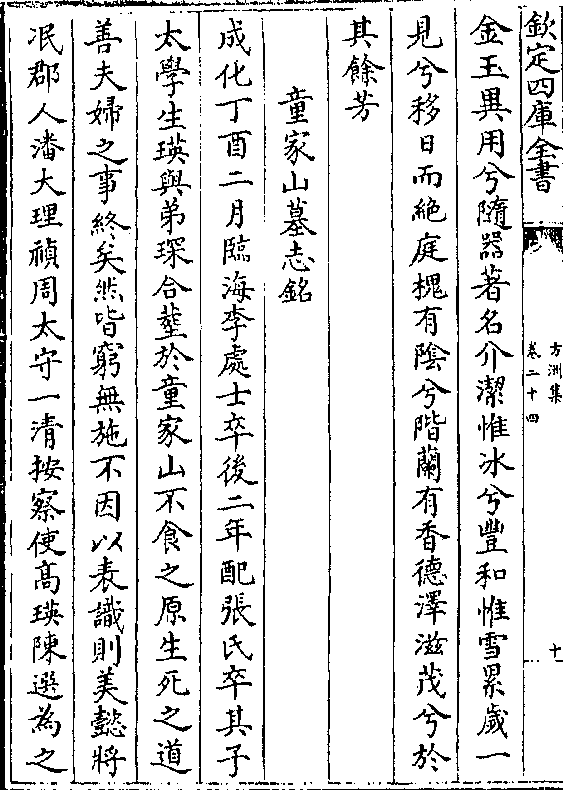 欽定四庫全書
方洲集
卷二十四
十
金玉異用兮隨器著名介潔惟冰兮豐和惟雪累歲一
見兮移日而絶庭槐有陰兮階蘭有香德澤滋茂兮於
其餘芳
童家山墓志銘
成化丁酉二月臨海李處士卒後二年配張氏卒其子
太學生瑛與弟琛合塟於童家山不食之原生死之道
善夫婦之事終矣然皆窮無施不因以表識則美懿將
泯郡人潘大理禎周太守一清按察使高瑛陳選為之